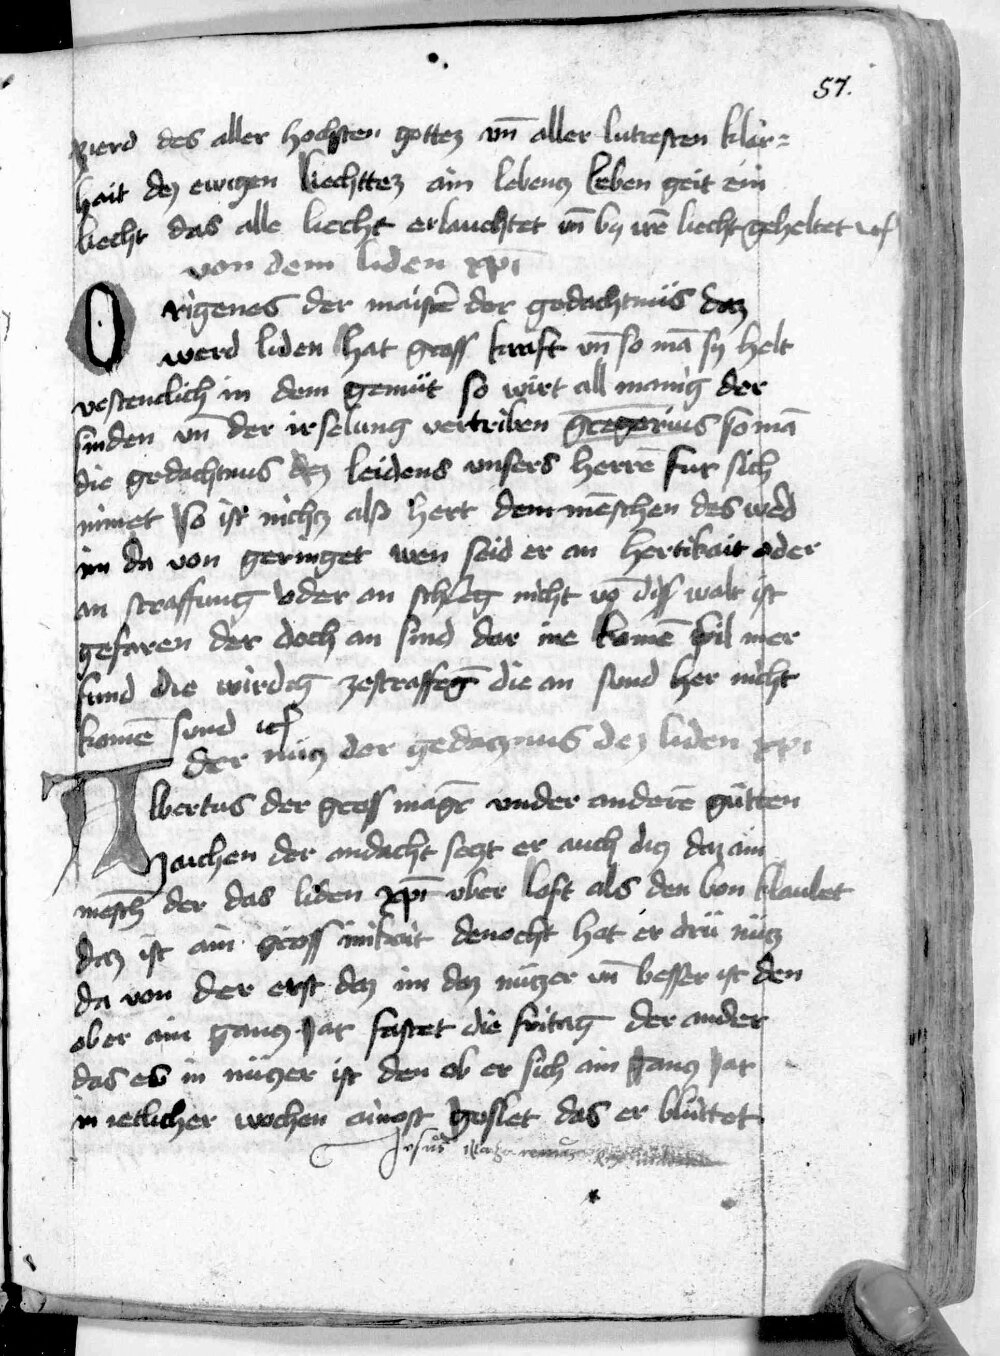 57.
zierd des aller hochsten gottez vn̄ aller lutresten klär=
hait dez ewigen liechttez ain lebenz leben geit ein
liecht das alle liecht erlauchtet vn̄ by irē liecht geheltet
von dem liden xp̄i
Origenes der maistē der gedachtnüs daz
werd liden hat gross kraft vn̄ so mā sy helt
vestenclich in dem gemüt so wirt all manig der
sinden vn̄ der irselung vertriben gregorius so mā
die gedachtnus dez leidens vnsers herrē fur sich
nimet so ist nichz also hert dem mēschen des werd
im da von geringet wen seid er an hertikait oder
an straffung oder an schleg nicht vō diss walt ist
gefaren der doch an sind dar ine komē wil mer
sund die wirdig zestraffēg die an sund her nicht
komē sund
der nücz der gedaczmus dez liden xp̄i
Albertus der gross magr̄ vnder anderē gütten
zaichen der andacht seczt er auch dicz daz ain
mēsch der das liden xp̄i vber loft als den bon klaubet
daz ist ain gross inikait denocht hat er drü nücz
da von der erst daz im daz nüczer vn̄ besser ist den
ob er ain gancz jar fastet die fritag der ander
das es in nüczer ist den ob er sich ain gancz jar
in ietlicher wochen ainost geslet das er blüttet
Jesus